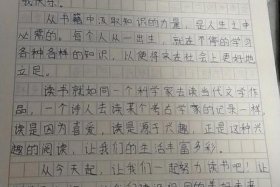 我快乐。
从书籍中汲取知识的力量,是人生中
必需的。每个人从一出生,就在不停的学习
各种各样的知识,以使得它在社会上更好地
立足。
读书就如同一个科学家去读当代文学作
品,一个诗人去读某个考古学家的记录一样,
读是因为喜爱,读是源于兴趣,正是这种兴
趣的阅读,让我们的生活丰富多彩。
从今天起,让我们一起努力读书吧!让